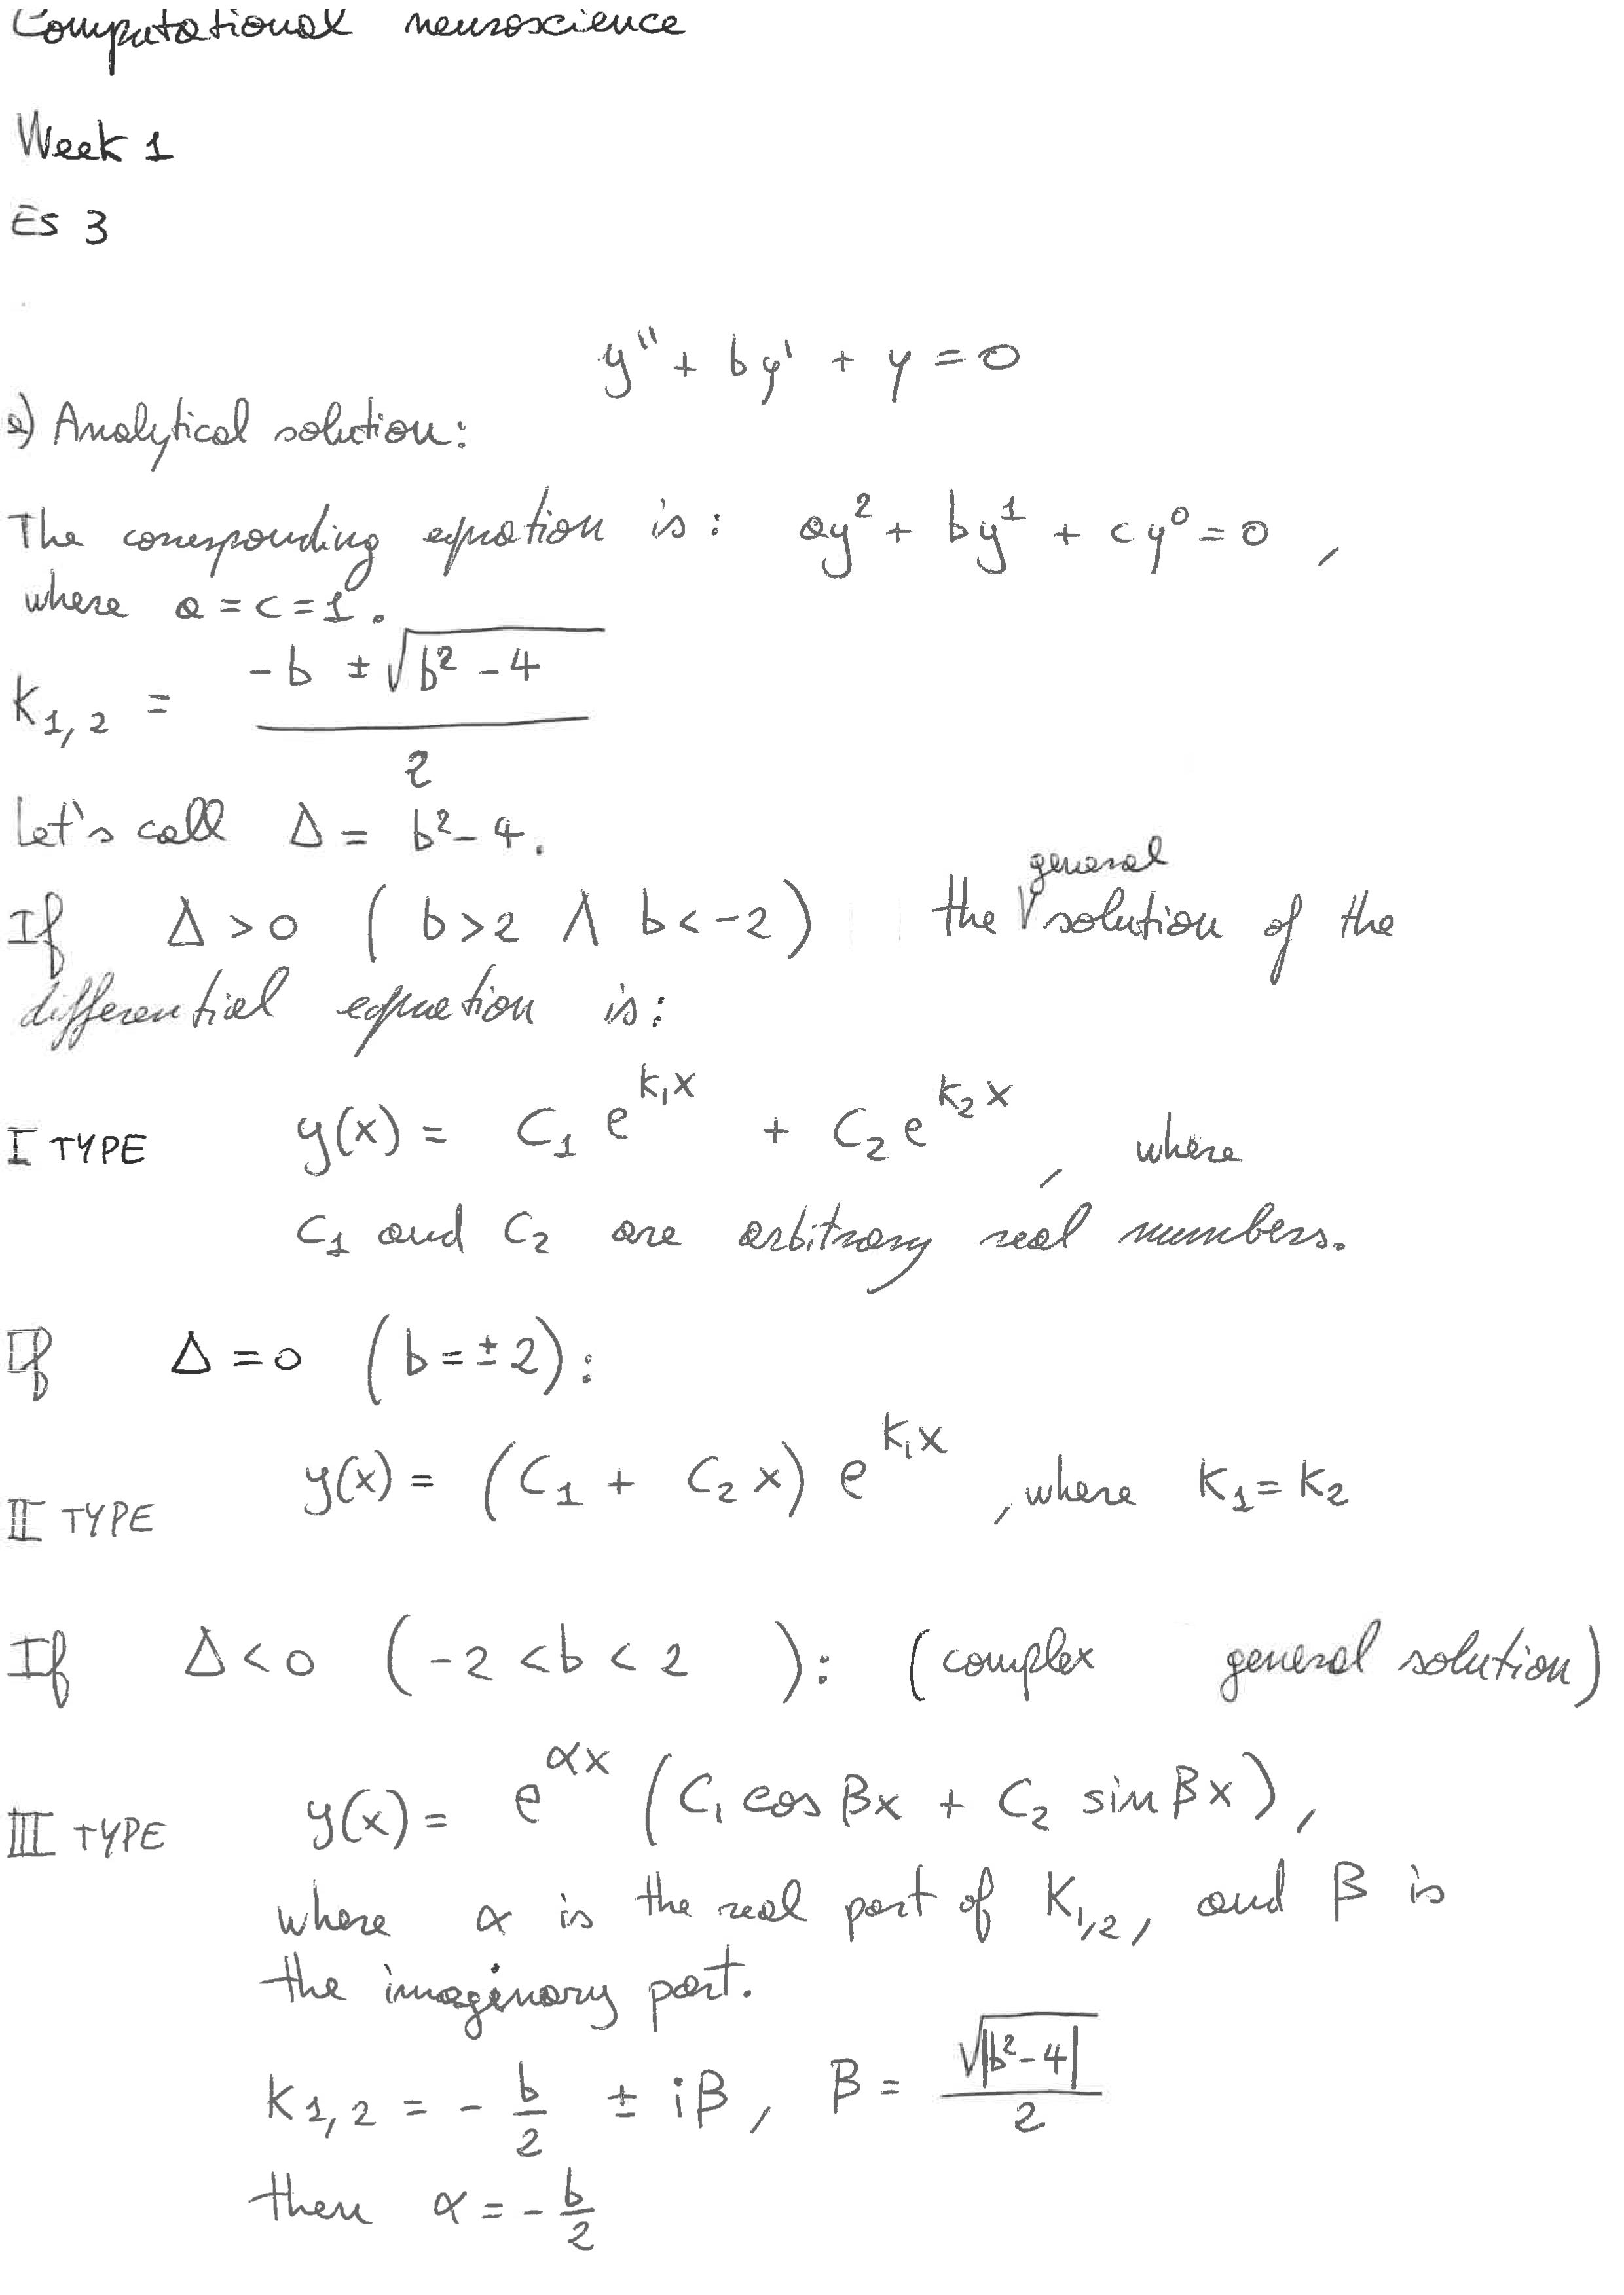 Computational neuroscience
Week 1
Es 3
y'' + by' + y = 0
a) Analytical solution:
The corresponding equation is: ay² + by¹ + cy⁰ = 0 ,
where a = c = 1.
K₁,₂ = (-b ± √(b² - 4)) / 2
Let's call Δ = b² - 4.
If Δ > 0 ( b > 2 ∧ b < -2 ) the general solution of the
differential equation is:
I TYPE y(x) = C₁ e^(k₁x) + C₂ e^(k₂x), where
C₁ and C₂ are arbitrary real numbers.
If Δ = 0 ( b = ± 2 ):
II TYPE y(x) = (C₁ + C₂ x) e^(k₁x) , where K₁ = K₂
If Δ < 0 ( -2 < b < 2 ): (complex general solution)
III TYPE y(x) = e^(αx) (C₁ cos βx + C₂ sin βx),
where α is the real part of K₁,₂, and β is
the imaginary part.
K₁,₂ = - b/2 ± iβ, β = √|b² - 4| / 2
then α = - b/2